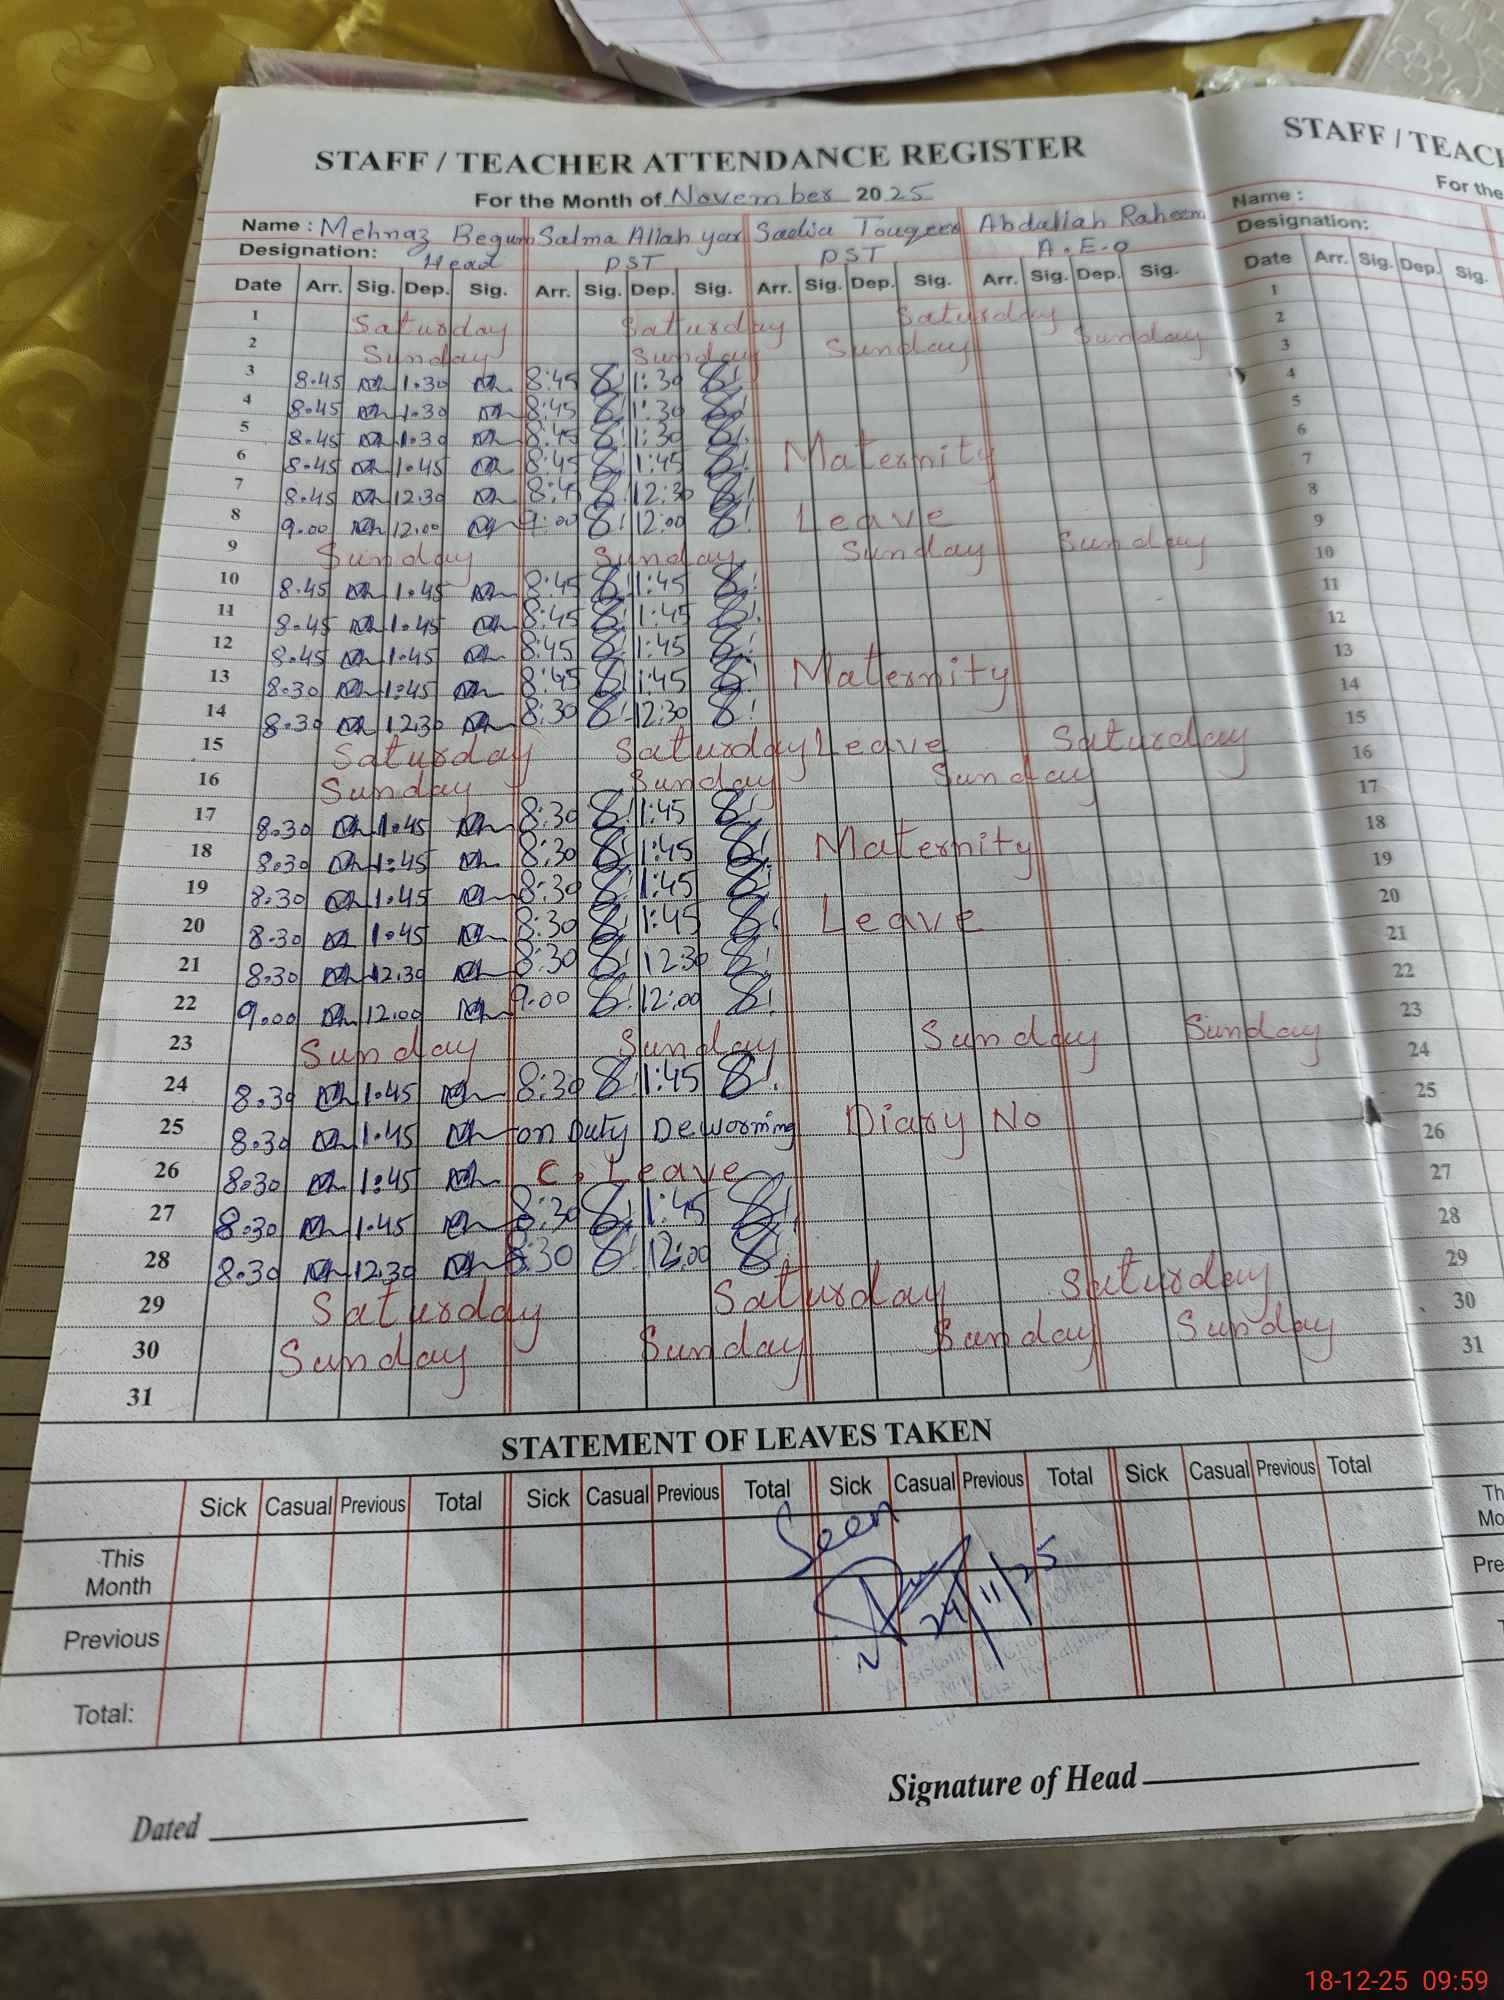 STAFF / TEACHER ATTENDANCE REGISTER
For the Month of November 2025
Name : Mehnaz Begum Salma Allah yar Sadia Touqeer Abdullah Raheem
Designation: Head PST PST A.E.O
Date Arr. Sig. Dep. Sig. Arr. Sig. Dep. Sig. Arr. Sig. Dep. Sig. Arr. Sig. Dep. Sig.
1 Saturday Saturday Saturday
2 Sunday Sunday Sunday Sunday
3 8.45 1.30 8:45 1:30
4 8.45 1.30 8:45 1:30
5 8.45 1.30 8:45 1:30
6 8.45 1.45 8:45 1:45 Maternity
7 8.45 12.30 8:45 12:30
8 9.00 12.00 9:00 12:00 Leave
9 Sunday Sunday Sunday Sunday
10 8.45 1.45 8:45 1:45
11 8.45 1.45 8:45 1:45
12 8.45 1.45 8:45 1:45
13 8.30 1:45 8:45 1:45 Maternity
14 8.30 12.30 8:30 12:30
15 Saturday Saturday Leave Saturday
16 Sunday Sunday Sunday
17 8.30 1.45 8:30 1:45
18 8.30 1:45 8:30 1:45 Maternity
19 8.30 1.45 8:30 1:45
20 8.30 1.45 8:30 1:45 Leave
21 8.30 12.30 8:30 1230
22 9.00 12.00 9.00 12:00
23 Sunday Sunday Sunday Sunday
24 8.30 1.45 8:30 1:45
25 8.30 1.45 on Duty Deworming Diary No
26 8.30 1:45 C. Leave
27 8.30 1.45 8:30 1:45
28 8.30 12.30 8:30 12:00
29 Saturday Saturday Saturday
30 Sunday Sunday Sunday Sunday
31
STATEMENT OF LEAVES TAKEN
Sick Casual Previous Total Sick Casual Previous Total Sick Casual Previous Total Sick Casual Previous Total
Seen
This
Month
24/11/25
Previous
Total:
Signature of Head
Dated
STAFF / TEACH
For the
Name :
Designation:
Date Arr. Sig. Dep. Sig.
1
2
3
4
5
6
7
8
9
10
11
12
13
14
15
16
17
18
19
20
21
22
23
24
25
26
27
28
29
30
31
Th
Mo
Pre
18-12-25 09:59